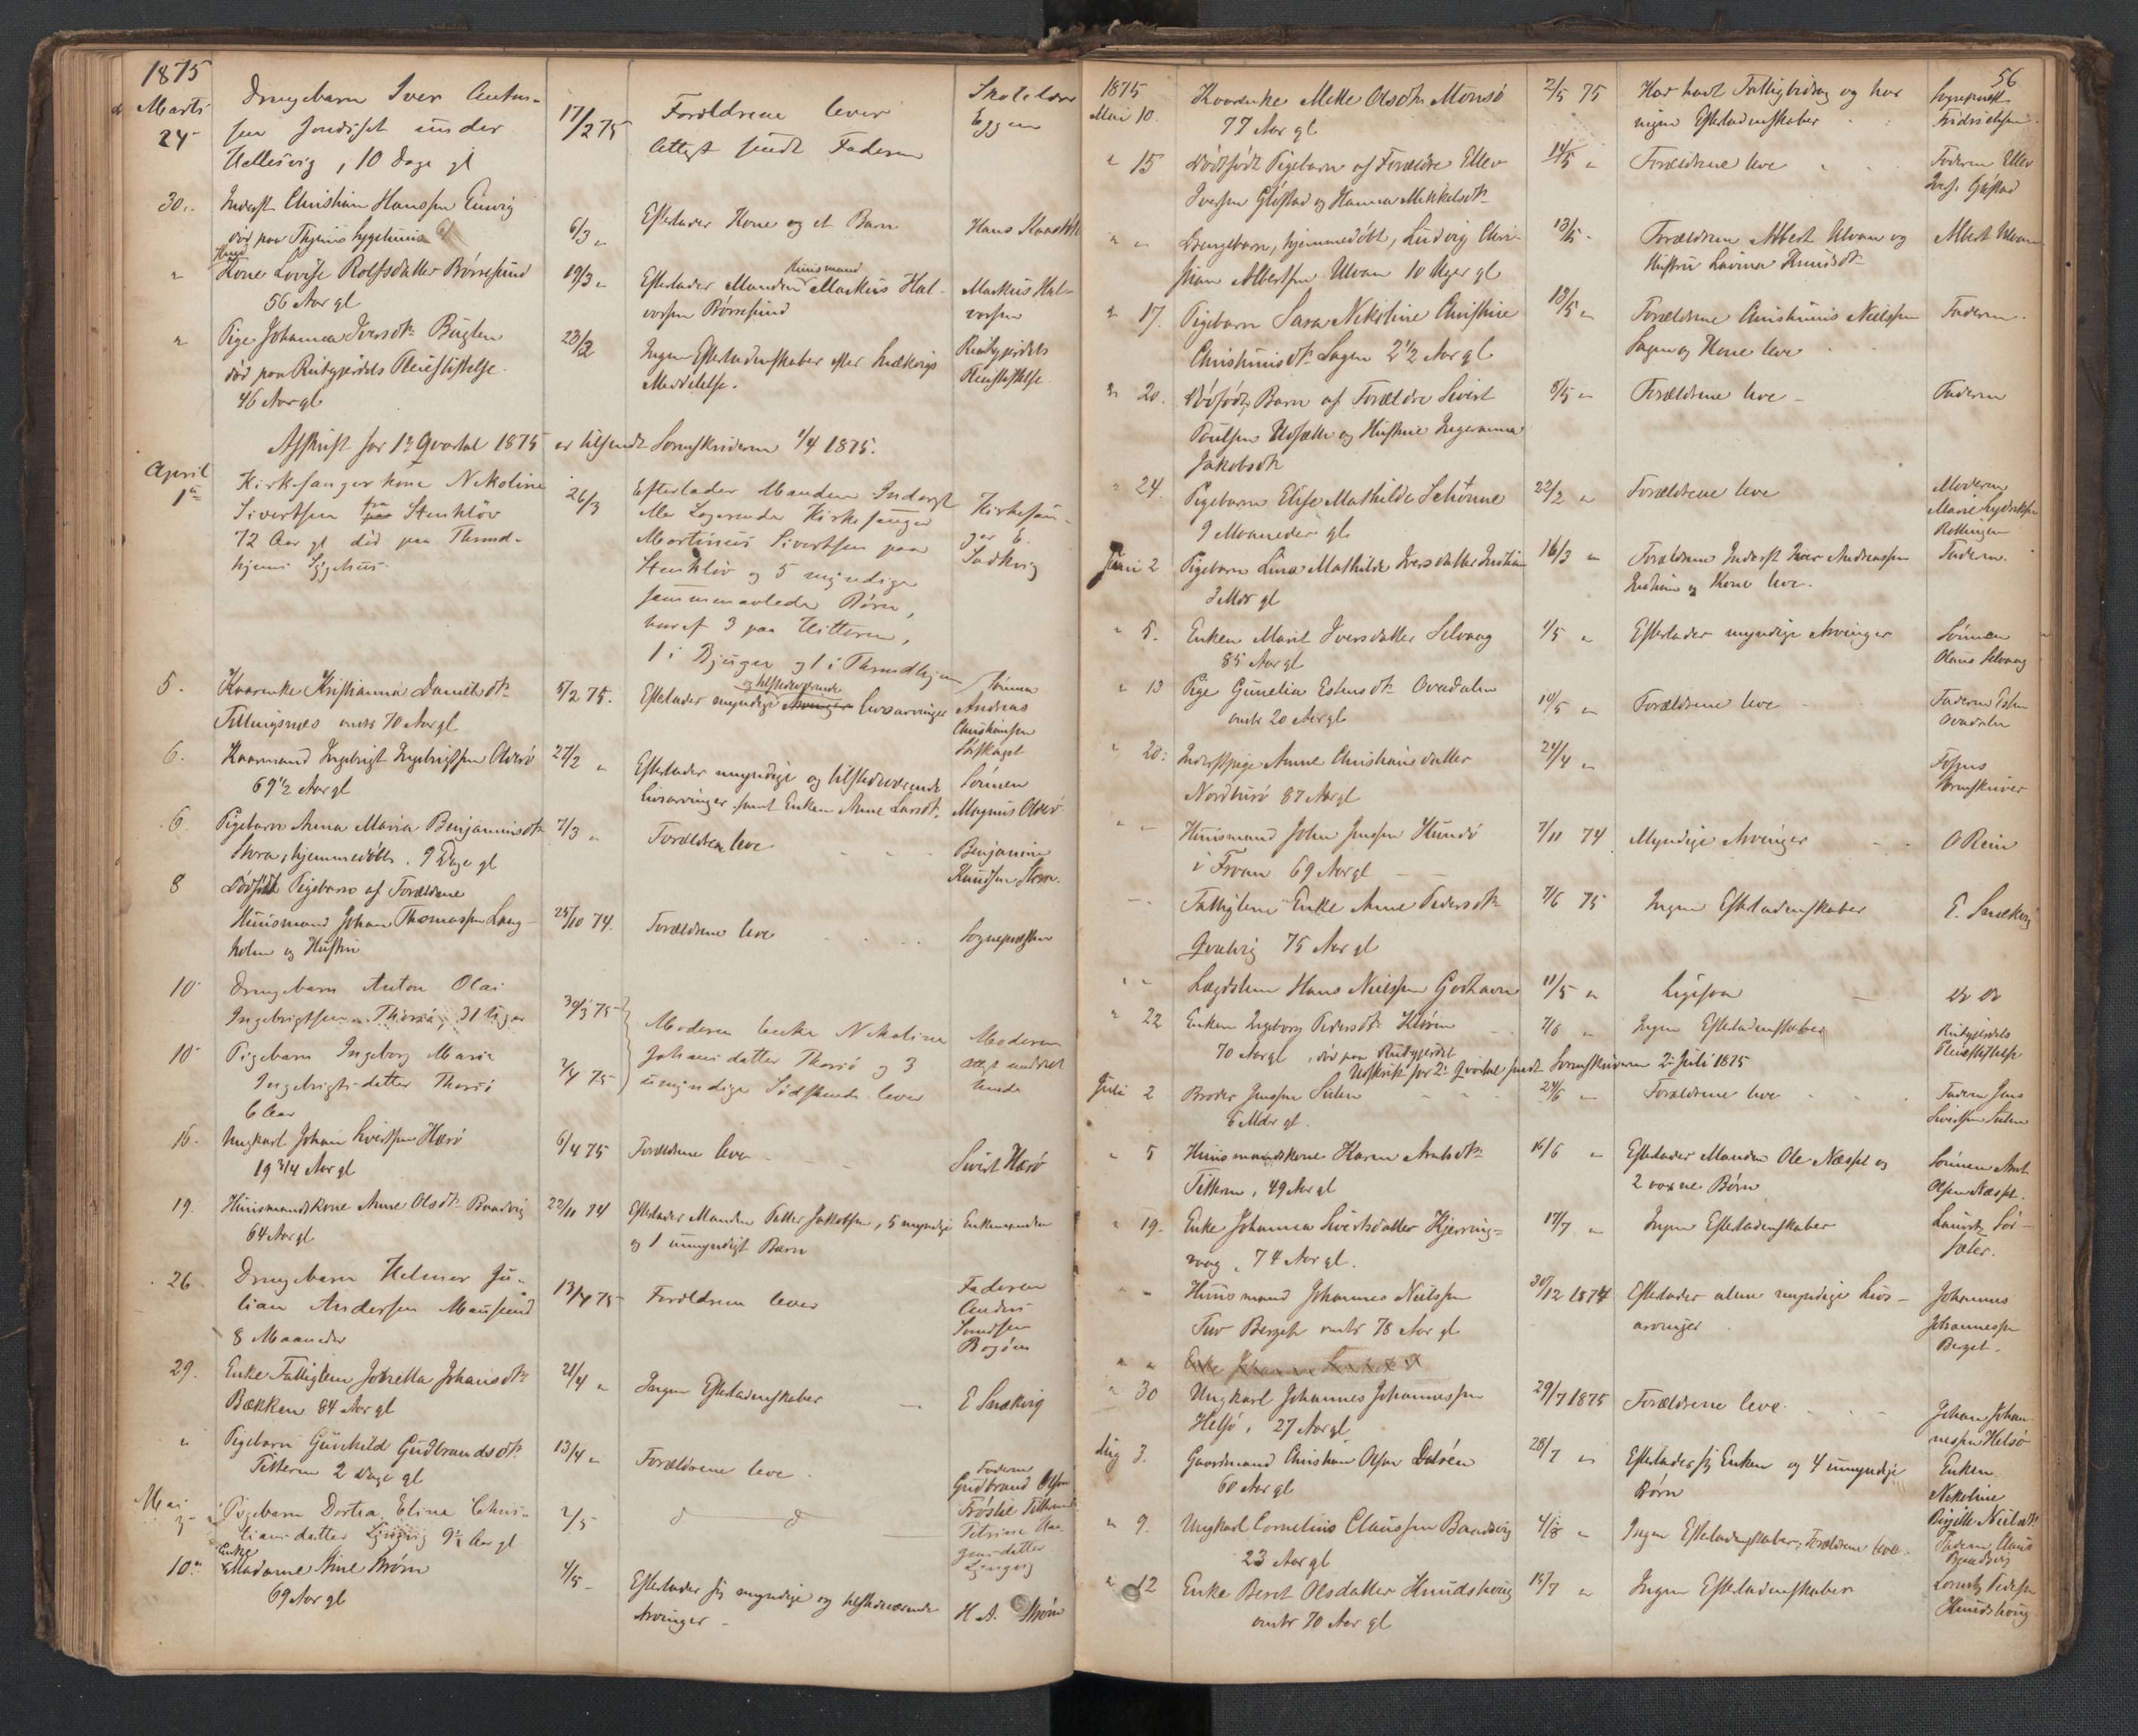 1875
Marts
24
Drengebarn Iver Anton-
sen Jondsset under
Hellesvig, 10 Dage gl
17/2 75
Forældrene lever
Attest sendt Faderen
Skolelærer
Eggen
30.
Inderst Christian Hanssen
død paa Thjems Sygehuus
6/3 "
Efterlader Kone og et Barn
Hans
"
Huusmd
Kone Lovise Rolfsdatter Børresund
56 Aar gl
19/3 "
Huusmand
Efterlader Manden Markus Hal-
vorsen Børresund
Markus Hal-
vorsen
"
Pige Johanna Iversdtr Buglen
død paa Reitgjerdets Pleiestiftelse
46 Aar gl
23/2
Ingen Efterladenskaber efter Snekvigs
Meddelelse.
Reitgjerdets
Pleiestiftelse
Afskrift for 1ste Qvartal 1875 er tilsendt Sorenskriveren 1/4 1875.
April
1
Kirkesangerkone Nekoline
Sivertsen fra Stenkløv
72 Aar gl død paa Thrond-
hjems Sygehus
26/3
Efterlader Manden Inderst
eller Logerende Kirkesanger
Martinus Sivertsen paa
Stenkløv og 5 myndige
sammenavlede Børn,
hvoraf 3 paa Hitteren,
1 i Bjugn og 1 i Throndhjem
Kirkesan-
ger E.
5.
Kaarenke Kristianna Danielsdtr
Tellingsnes omtr 70 Aar gl
5/2 75.
og tilstedeværende
Efterlader myndige Arvinger Livsarvinger
Sønnen
Andreas
Christiansen
6.
Kaarmand Ingebrigt Ingebrigtsen Olderø
69 1/2 Aar gl
27/2 "
Efterlader myndige og tilstedeværende
Livsarvinger samt Enken Anne Larsdt.
Sønnen
Magnus Olderø
6.
Pigebarn Anna Maria Benjaminsdtr
Storø, hjemmedøbt. 9 Dage gl
7/3 "
Forældrene leve
Benjamin
Knudsen Storø.
8
Dødfødt Pigebarn af Forældrene
Huusmand Johan Thomassen Lang-
holm og Hustru
25/10 74.
Forældrene leve
Sognepresten
10
Drengebarn Anton Olai
Ingebrigtsen Thorsø, 31 Uger
30/3 75
Moderen Enke Nekoline
Johansdatter Thorsø og 3
umyndige Sødskende lever
Moderen
10
Pigebarn Ingeborg Marie
Ingebrigtsdatter Thorsø
6 Aar
2/4 75
16.
Ungkarl Johan Sivertsen Hærø
19 3/4 Aar gl
6/4 75
Forældrene leve
Sivert Hærø
19.
Huusmandskone Anne Olsdtr Baadvig
64 Aar gl
22/11 74
Efterlader Manden Petter Jakobsen, 5 myndige
og 1 umyndigt Barn
Enkemanden
26
Drengebarn Helmer Ju-
lian Andersen Mausund
8 Maaneder
13/4 75
Forældrene lever
Faderen
Anders
29.
Enke Fattiglem Johanna Johansdtr
Bækken 84 Aar gl
21/4 "
Ingen Efterladenskaber
E Snekvig
"
Pigebarn Gunhild Gudbrandsdtr
Titteren 2 Dage gl
13/4 "
Forældrene leve
Faderen
Gudbrand Olsen
Titteren
Mai
3
Pigebarn Dortea Elina Chris-
tiansdatter 9 1/2 Aar gl
2/5
d d
10
Enke
Madame Ane Strøm
69 Aar gl
4/5
Efterlader sig myndige og tilstedeværende
Arvinger
H. A. Strøm
56
1875
Mai 10.
Kaarenke Mette Olsdtr Monsø
77 Aar gl
2/5 75
Har havt Fattigbidrag og har
ingen Efterladenskaber
Sognepræst
Fridrichsen
" 15
Dødfødt Pigebarn af Forældre Ellev
Iversen Gløstad og Hanna Mikkelsdtr
14/5 "
Forældrene leve
Faderen Ellev
Ivers. Gløstad
" "
Drengebarn, hjemmedøbt, Ludvig Chri-
stian Albertsen Ulvan 10 Uger gl
13/5 -
Forældrene Albert Ulvan og
Hustru Lavina Knudsdtr
Albert Ulvan
" 17.
Pigebarn Sara Nikoline Christine
Christiansdtr Sagen 2 1/2 Aar gl
13/5 "
Forældrene Christianus Nielssen
Sagen og Kone leve
Faderen.
" 20.
Dødfødt Barn af Forældre Sivert
Poulsen Ulvsætr og Hustrue Ingeranna
Jakobsdtr
8/5 "
Forældrene leve -
Faderen
" 24.
Pigebarn Elise Mathilde Schønne
9 Maaneder gl
22/2 "
Forældrene leve
Moderen
Marie
Juni 2
Pigebarn Lina Mathilde Iversdatter
3 Mdr gl
16/3 "
Forældrene Inderst Iver Andreassen
og Kone leve.
Faderen.
" 5.
Enken Marit Iversdatter Selvaag
85 Aar gl
1/5 "
Efterlader myndige Arvinger
Sønnen
Olaus Selvaag
" 13
Pige Gunelia Estensdtr Ovadalen
omtr 20 Aar gl
10/5 "
Forældrene leve
Faderen Esten
Ovadalen
" 20.
Inderstpige Anne Christiansdatter
Nordburø 87 Aar gl
24/4 "
Fosens
Sorenskriver
" -
Huusmand John Jenssen Sundø
i Froan 69 Aar gl
7/11 74
Myndige Arvinger
O Rein
- "
Fattiglem Enke Anne Pedersdtr
Qvalvig 75 Aar gl
7/6 75
Ingen Efterladenskaber
E. Snekvig
" "
Lægdslem Hans Nielssen Godhavn
11/5 "
Ligesaa
Do Do
" 22
Enken Ingeborg Pedersdtr
70 Aar gl, død paa Reitgjerdet
7/6 "
Ingen Efterladenskaber
Reitgjerdets
Pleiestiftelse
Udskrift for 2det Qvartal sendt Sorenskriveren 2 Juli 1875
Juli 2
Broder Jenssen Sulen
6 Mdr gl.
24/6 "
Forældrene leve
Faderen Jens
Sivertsen Sulen
" 5
Huusmandskone Karen Arntsdtr
Titteren, 49 Aar gl
16/6 "
Efterlader Manden Ole Næsset og
2 voxne Børn
Sønnen Arnt
Olsen Næsset.
" 19.
Enke Johanna Sivertsdatter Kjerring-
vaag, 74 Aar gl.
17/7 "
Ingen Efterladenskaber
Lauritz Sør-
sæter.
" "
Huusmand Johannes Nielssen
Berget omtr 78 Aar gl
30/12 1874
Efterlader alene myndige Livs-
arvinger
Johannes
Johannessen
Berget.
" "
Enke Johanna
" 30
Ungkarl Johannes Johannessen
Helsø, 27 Aar gl
29/7 1875
Forældrene leve
Johan Johan-
nessen Helsø
Aug 3.
Gaardmand Christian Olsen Dolvén
60 Aar gl
28/7 "
Efterlader sig Enken og 4 umyndige
Børn
Enken
Nekoline
Birgitte Nielsdtr
" 9.
Ungkarl Cornelius Claussen Baadsvig
23 Aar gl
4/8 "
Ingen Efterladenskaber. Forældrene leve.
Faderen Claus
Baadsvig
" 12
Enke Beret Olsdatter Knudshoug
omtr 70 Aar gl
14/7 "
Ingen Efterladenskaber
Lorentz Pedersen
Knudshoug